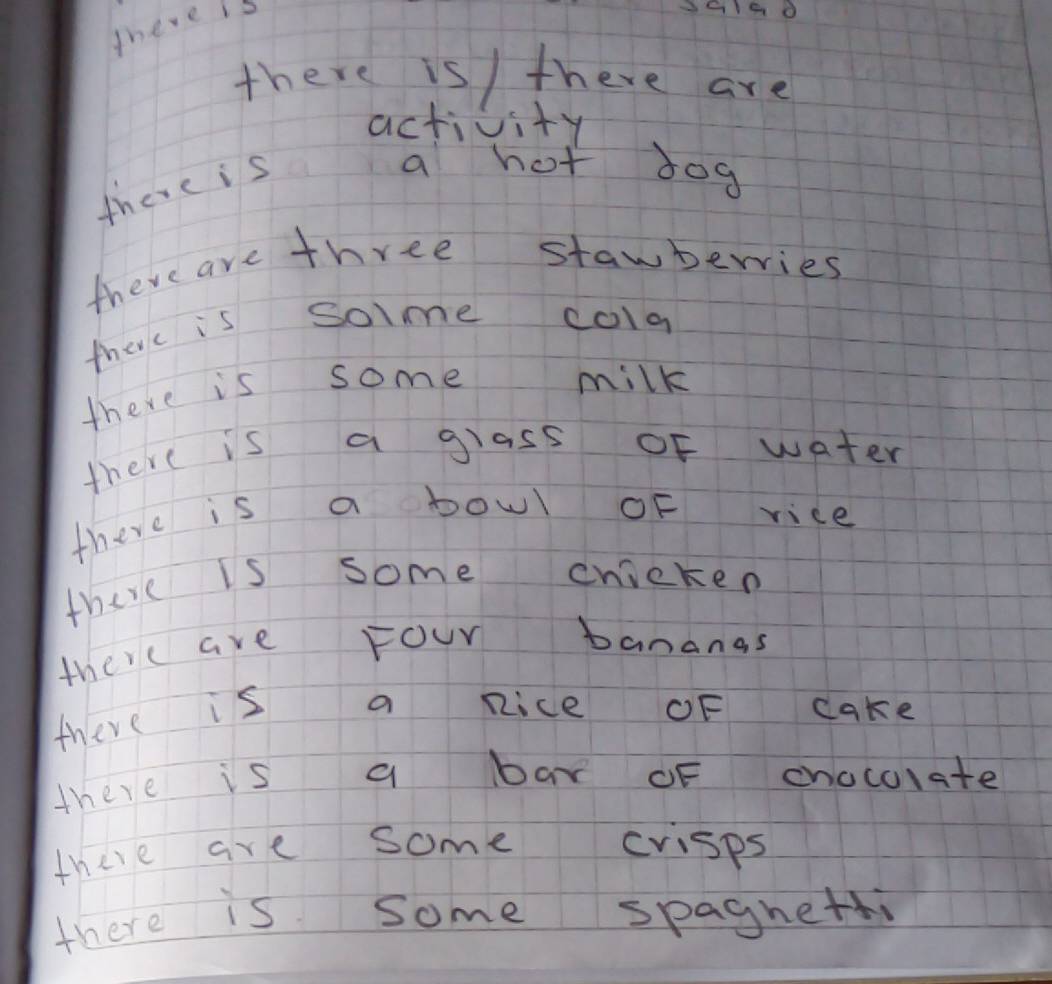 there is salad
there is/ there are
activity
there is a hot dog
there are three stawberries
there is solme cola
there is some milk
there is a glass OF water
there is a bowl OF rice
there is some chicken
there are Four bananas
there is a Rice OF cake
there is a bar OF chocolate
there are some crisps
there is some spaghetti